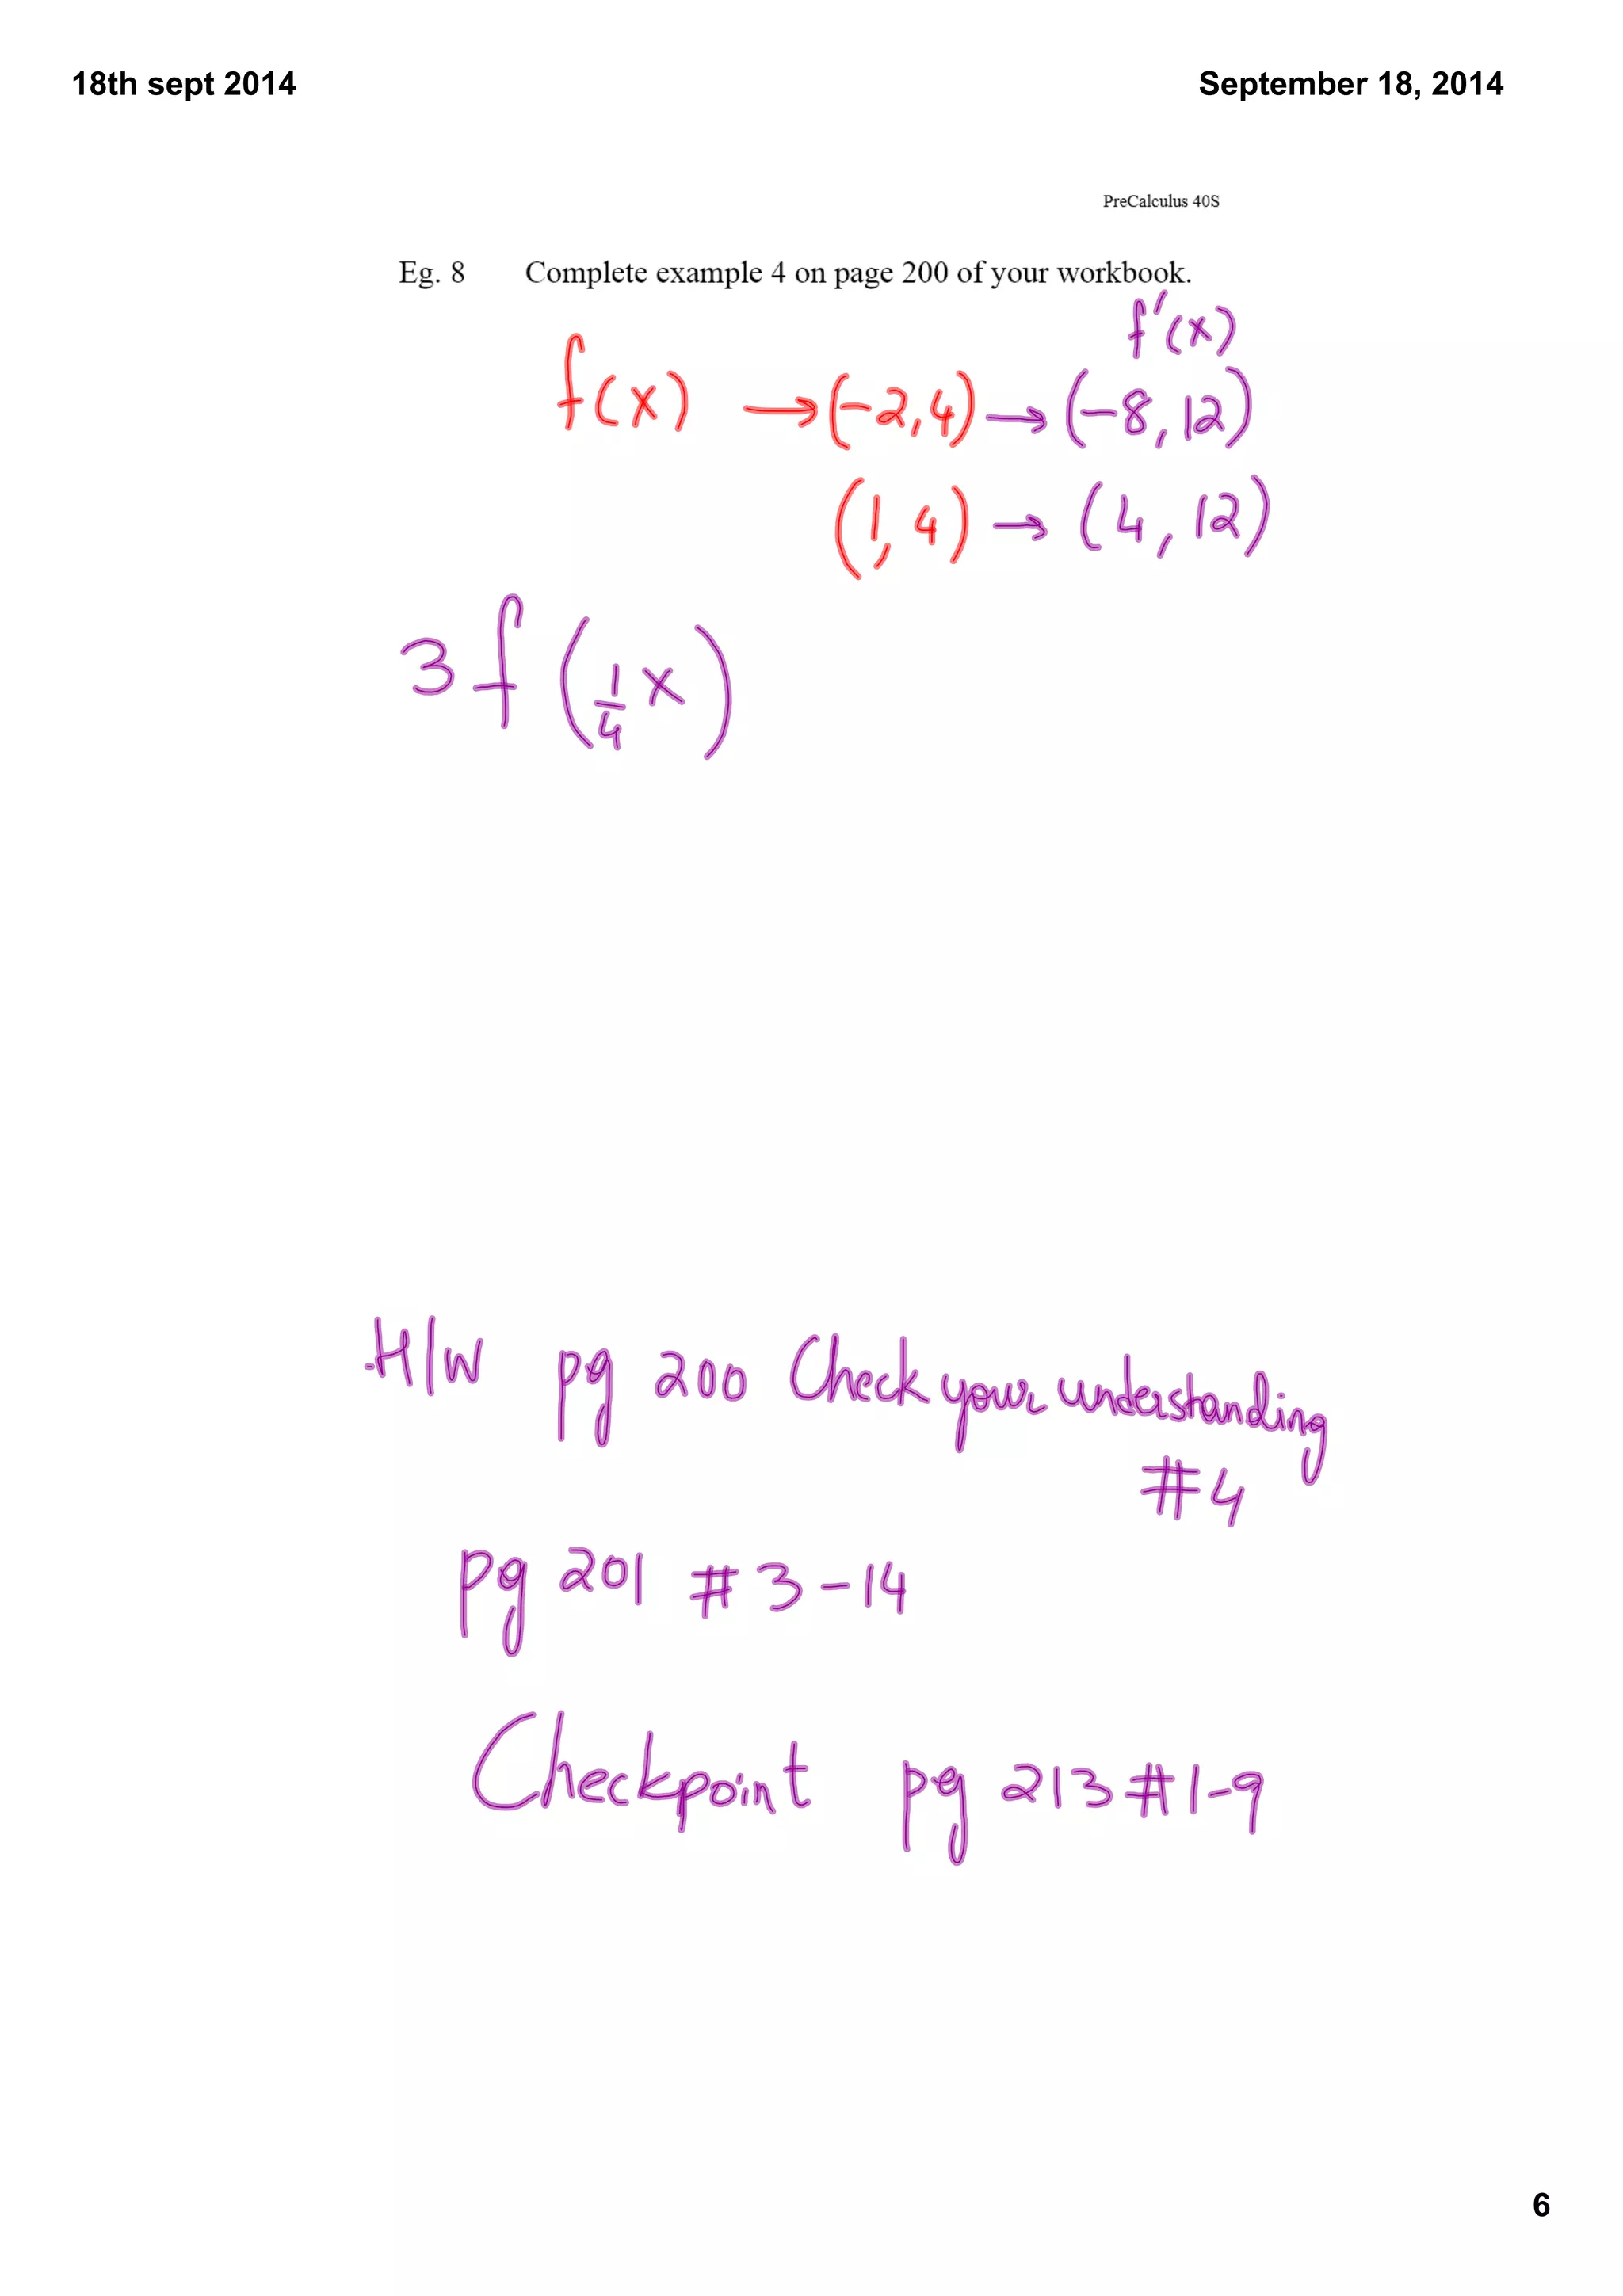 18th sept 2014 September 18, 2014
PreCalculus 40S
Eg. 8 Complete example 4 on page 200 of your workbook.
f'(x)
f(x) → (-2,4) → (-8,12)
(1,4) → (4,12)
3f(1/4 x)
H/W pg 200 Check your understanding
#4
pg 201 #3-14
Checkpoint pg 213 #1-9
6